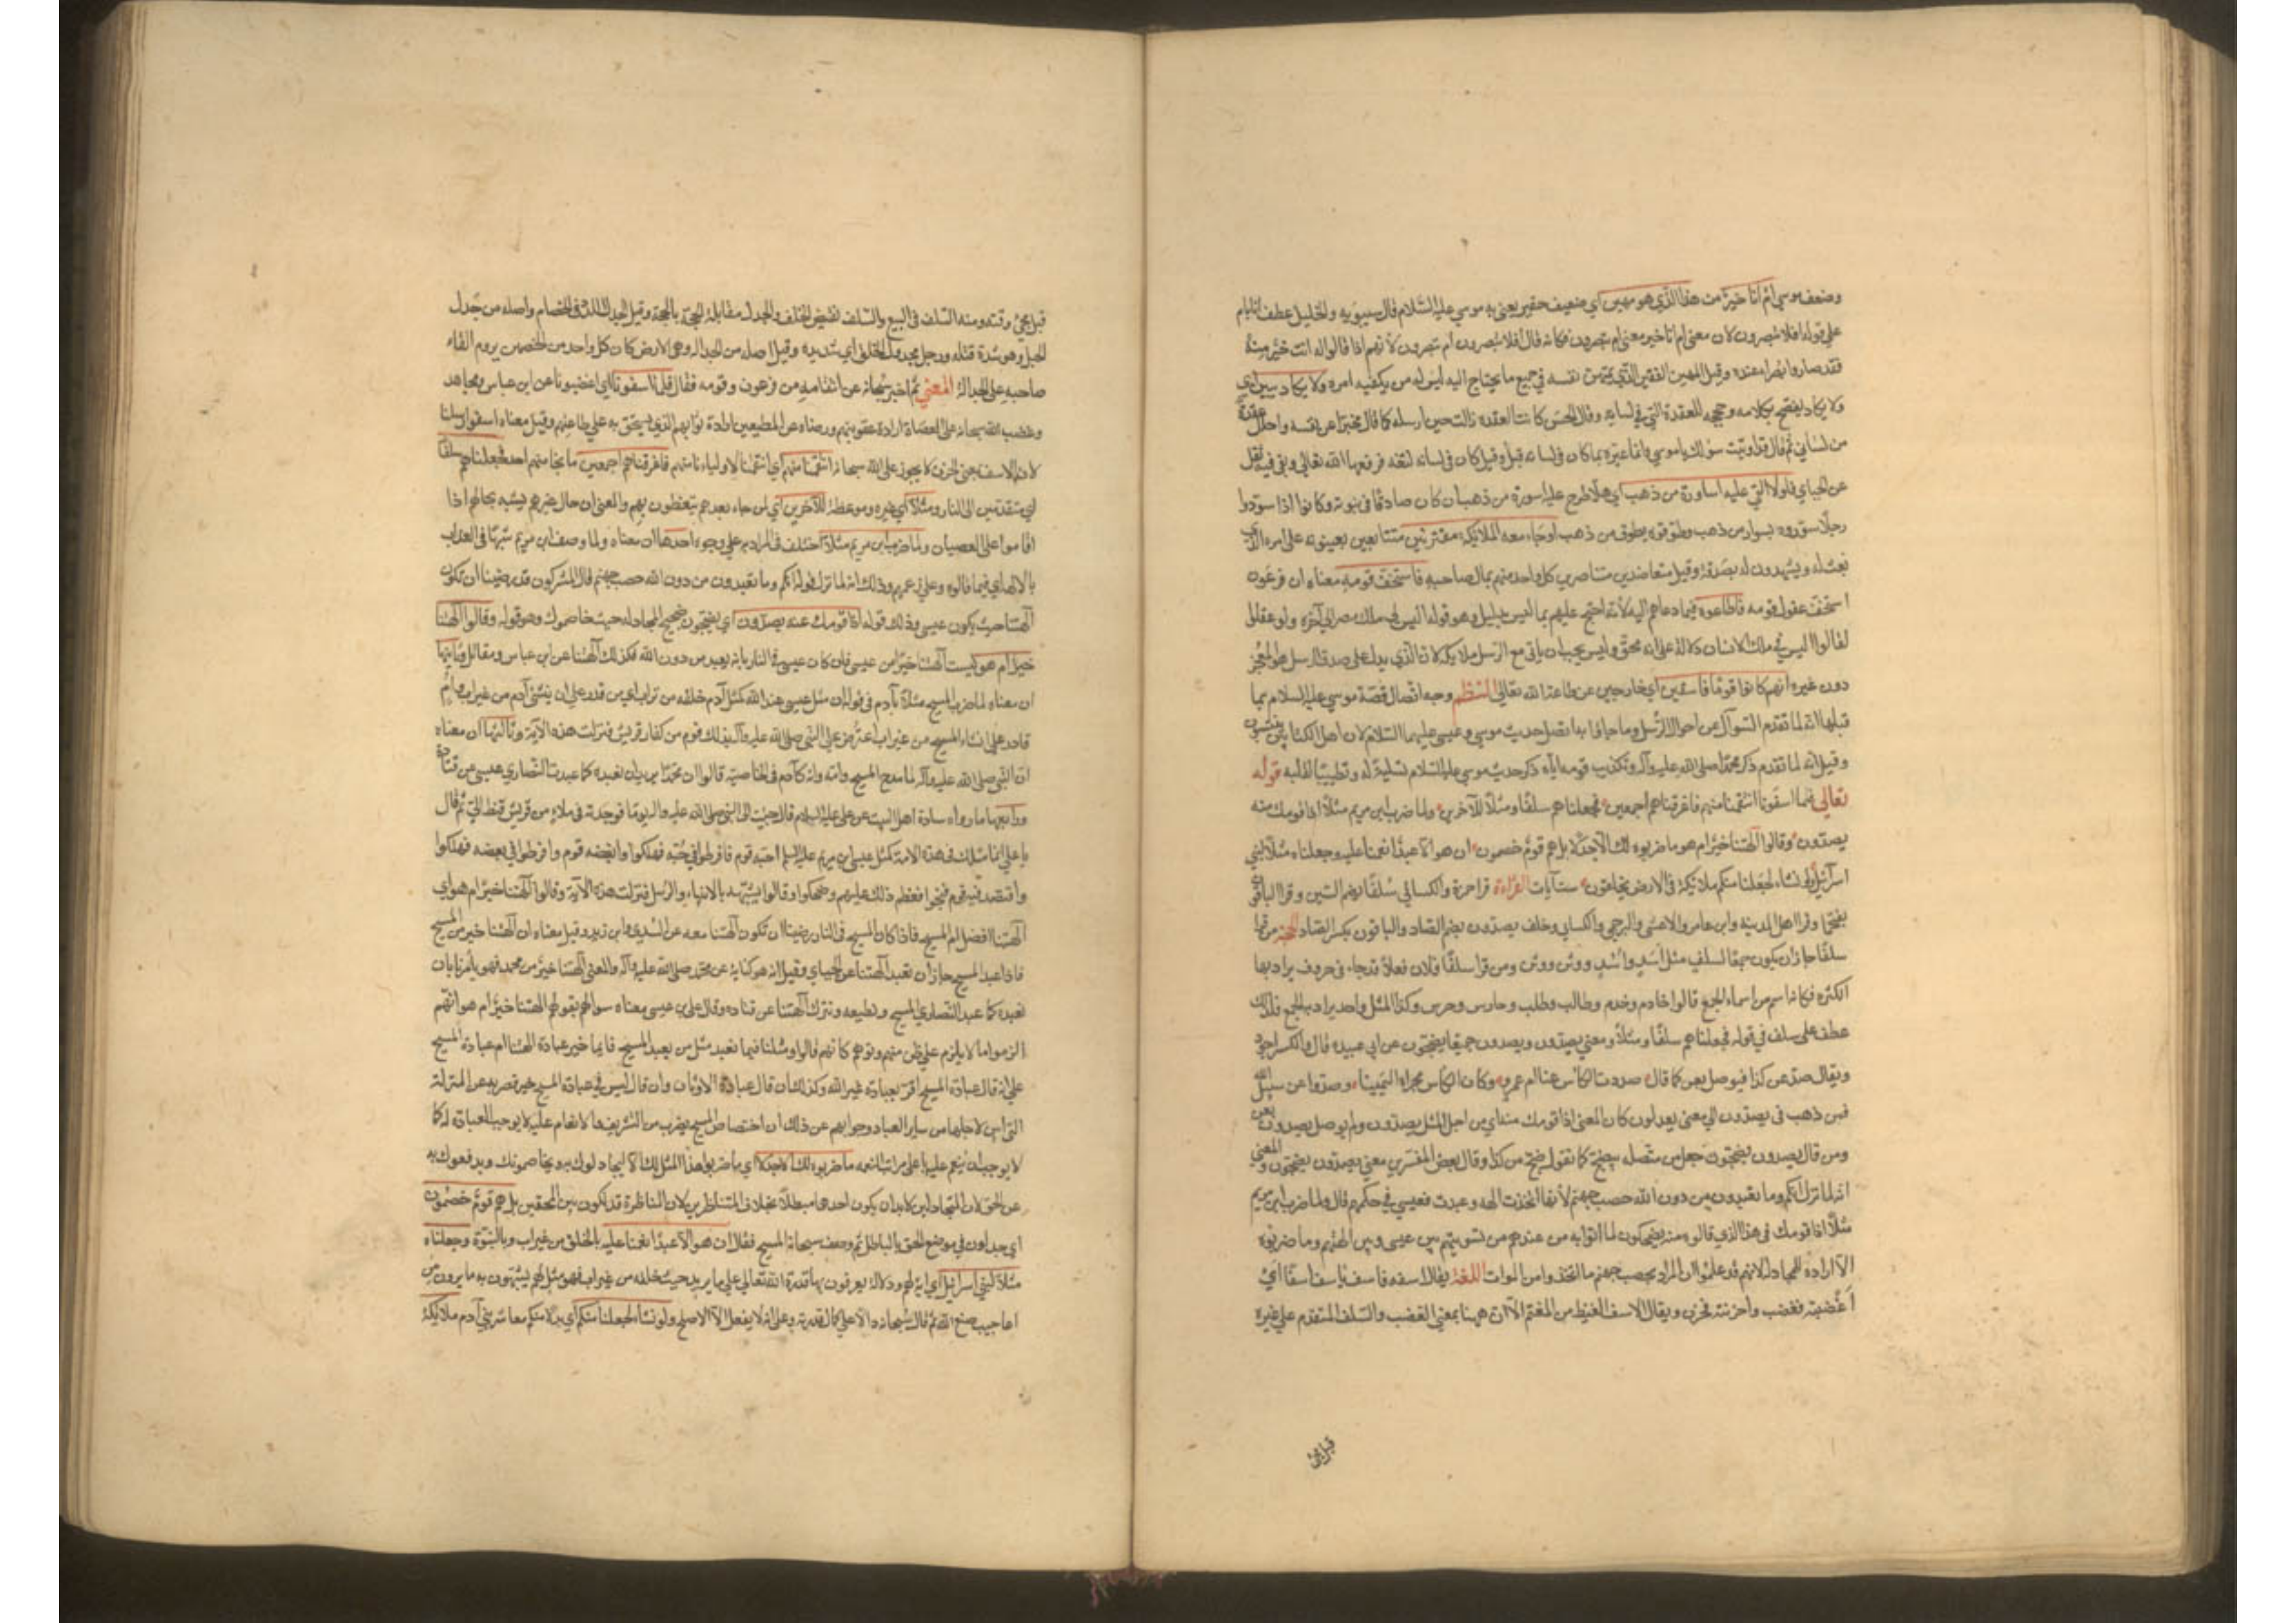 وضعف موسى ام انا خير من هذا الذي هو مهين اي ضعيف حقير يعني به موسى عليه السلام قال سيبويه والخليل عطف انا بام
على قوله افلا تبصرون لان معنى ام انا خير معنى ام تبصرون فكانه قال افلا تبصرون ام تبصرون لانهم اذا قالوا له انت خير منه
فقد صاروا بصراء عنده وقيل المهين الفقير الذي يمتهن نفسه في جميع ما يحتاج اليه ليس له من يكفيه امره ولا يكاد يبين اي
ولا يكاد يفصح بكلامه وحججه للعقدة التي في لسانه وقال الحسن كانت العقدة زالت حين ارسله كما قال مخبرا عن نفسه واحلل عقدة
من لساني ثم قال قد اوتيت سؤلك يا موسى وانما عيره بما كان في لسانه قبل وقيل كان في لسانه لثغة فرفعها الله تعالى وبقي فيه ثقل
عن الجبائي فلولا القي عليه اساورة من ذهب اي هلا طرح عليه اسورة من ذهب ان كان صادقا في نبوته وكانوا اذا سودوا
رجلا سوروه بسوار من ذهب وطوقوه بطوق من ذهب او جاء معه الملائكة مقترنين متتابعين يعينونه على امره الذي
بعث له ويشهدون له بصدقه وقيل متعاضدين متناصرين كل واحد منهم يمالي صاحبه فاستخف قومه معناه ان فرعون
استخف عقول قومه فاطاعوه فيما دعاهم اليه لانه احتج عليهم بما ليس بدليل وهو قوله اليس لي ملك مصر الى آخره ولو عقلوا
لقالوا ليس في ملك الانسان دلالة على انه محق وليس يجب ان ياتي مع الرسل ملائكة لان الذي يدل على صدق الرسل هو المعجز
دون غيره انهم كانوا قوما فاسقين اي خارجين عن طاعة الله تعالى النظم وجه اتصال قصة موسى عليه السلام بما
قبلها انه لما تقدم السؤال عن احوال الرسل وما جاؤا به اتصل حديث موسى وعيسى عليهما السلام لان اهل الكتابين ينتسبون
وقيل انه لما تقدم ذكر محمد صلى الله عليه وآله وتكذيب قومه اياه ذكر حديث موسى عليه السلام تسلية له وتطييبا لقلبه قوله
تعالى فلما اسفونا انتقمنا منهم فاغرقناهم اجمعين فجعلناهم سلفا ومثلا للآخرين ولما ضرب ابن مريم مثلا اذا قومك منه
يصدون وقالوا آلهتنا خير ام هو ما ضربوه لك الا جدلا بل هم قوم خصمون ان هو الا عبد انعمنا عليه وجعلناه مثلا لبني
اسرائيل ولو نشاء لجعلنا منكم ملائكة في الارض يخلفون ست آيات القراءة قرا حمزة والكسائي سلفا بضم السين وقرا الباقون
بفتحها وقرا اهل المدينة وابن عامر والاعشى والبرجمي والكسائي وخلف يصدون بضم الصاد والباقون بكسر الصاد الحجة من قرا
سلفا جاز ان يكون جمعا لسلف مثل اسد واسد ووثن ووثن ومن قرا سلفا فلان فعلا قد جاء في حروف يراد بها
الكثرة فكانه اسم من اسماء الجمع قالوا خادم وخدم وطالب وطلب وحارس وحرس وكذا المثل واحد يراد به الجمع فلذلك
عطف على سلف في قوله فجعلناهم سلفا ومثلا ومعنى يصدون ويصدون جميعا يضجون عن ابي عبيدة قال والكسر اجود
ويقال صد عن كذا فيوصل بعن كما قال صددت الكاس عنا ام عمرو وكان الكاس مجراها اليمينا وصدوا عن سبيل الله
فمن ذهب في يصدون الى معنى يعدلون كان المعنى اذا قومك منه اي من اجل المثل يصدون ولم يوصل يصدون بعن
ومن قال يصدون يضجون جعل من متصلة بيضج كما تقول ضج من كذا وقال بعض المفسرين معنى يصدون يضجون والمعنى
انه لما نزل انكم وما تعبدون من دون الله حصب جهنم لانها اتخذت آلهة وعبدت فعيسى في حكمهم قال ولما ضرب ابن مريم
مثلا اذا قومك في هذا الذي قالوه منه يضحكون لما اتوا به من عندهم من تسويتهم بين عيسى وبين آلهتهم وما ضربوه
الا ارادة للمجادلة لانهم قد علموا ان المراد بحصب جهنم ما اتخذوا من الموات اللغة يقال اسفه فاسف ياسف اسفا اي
اغضبه فغضب واحزنه فحزن ويقال الاسف الغيظ من المغتم الا ان ههنا بمعنى الغضب والسلف المتقدم على غيره
قبل مجئ
قبل مجئ وقته ومنه السلف في البيع والسلف نقيض الخلف والجدل مقابلة الحجة بالحجة وقيل الجدل اللدد في الخصام واصله من جدل
الحبل وهو شدة فتله ورجل مجدول الخلق اي شديده وقيل اصله من الجدالة وهي الارض كان كل واحد من الخصمين يروم القاء
صاحبه على الجدالة المعنى ثم اخبر سبحانه عن انتقامه من فرعون وقومه فقال فلما اسفونا اي اغضبونا عن ابن عباس ومجاهد
وغضب الله سبحانه على العصاة ارادة عقوبتهم ورضاه عن المطيعين ارادة ثوابهم الذي يستحق به على طاعتهم وقيل معناه اسفوا رسلنا
لان الاسف بمعنى الحزن لا يجوز على الله سبحانه انتقمنا منهم اي انتقمنا لاوليائنا منهم فاغرقناهم اجمعين ما نجا منهم احد فجعلناهم سلفا
اي متقدمين الى النار ومثلا اي عبرة وموعظة للآخرين اي لمن جاء بعدهم يتعظون بهم والمعنى ان حال غيرهم يشبه بحالهم اذا
اقاموا على العصيان ولما ضرب ابن مريم مثلا اختلف في المراد به على وجوه احدها ان معناه ولما وصف ابن مريم شبها في العذاب
بالآلهة اي فيما قالوه وعلى زعمهم وذلك انه لما نزل قوله انكم وما تعبدون من دون الله حصب جهنم قال المشركون قد رضينا ان تكون
آلهتنا حيث يكون عيسى وذلك قوله اذا قومك عنه يصدون اي يضجون ضجيج المجادلة حيث خاصموك وهو قوله وقالوا آلهتنا
خير ام هو اي ليست آلهتنا خيرا من عيسى فان كان عيسى في النار بانه يعبد من دون الله فكذلك آلهتنا عن ابن عباس ومقاتل وثانيها
ان معناه لما ضرب المسيح مثلا بآدم في قوله ان مثل عيسى عند الله كمثل آدم خلقه من تراب اي من قدر على ان ينشئ آدم من غير اب وام
قادر على انشاء المسيح من غير اب اعترض على النبي صلى الله عليه وآله بذلك قوم من كفار قريش فنزلت هذه الآية وثالثها ان معناه
ان النبي صلى الله عليه وآله لما مدح المسيح وامه وانه كآدم في الخاصية قالوا ان محمدا يريد ان نعبده كما عبدت النصارى عيسى عن قتادة
ورابعها ما رواه سادة اهل البيت عن علي عليه السلام قال جئت الى النبي صلى الله عليه وآله يوما فوجدته في ملاء من قريش فنظر الي ثم قال
يا علي انما مثلك في هذه الامة كمثل عيسى ابن مريم عليه السلم احبه قوم فافرطوا في حبه فهلكوا وابغضه قوم وافرطوا في بغضه فهلكوا
واقتصد فيه قوم فنجوا فعظم ذلك عليهم وضحكوا وقالوا يشبهه بالانبياء والرسل فنزلت هذه الآية وقالوا آلهتنا خير ام هو اي
آلهتنا افضل ام المسيح فاذا كان المسيح في النار رضينا ان تكون آلهتنا معه عن السدي وابن زيد وقيل معناه ان آلهتنا خير من المسيح
فاذا عبد المسيح جاز ان نعبد آلهتنا عن الجبائي وقيل انه هو كناية عن محمد صلى الله عليه وآله والمعنى آلهتنا خير من محمد فهو يامرنا بان
نعبده كما عبد النصارى المسيح ونطيعه ونترك آلهتنا عن قتادة وقال علي بن عيسى معناه سؤالهم بقولهم آلهتنا خير ام هو انهم
الزموا ما لا يلزم على ظن منهم وتوهم كانهم قالوا ومثلنا فيما نعبد مثل من يعبد المسيح فايما خير عبادة آلهتنا ام عبادة المسيح
على انه قال عبادة المسيح اقر بعبادة غير الله وكذلك ان قال عبادة الاوثان وان قال ليس في عبادة المسيح خير قصر به عن المنزلة
التي ليس لاجلها من سائر العباد وجوابهم عن ذلك ان اختصاص المسيح بضرب من التشريف والانعام عليه لا يوجب العبادة له كما
لا يوجب ان ينعم عليه باعلى مراتب النعمة ما ضربوه لك الا جدلا اي ما ضربوا هذا المثل لك الا ليجادلوك به ويخاصموك ويدفعوك به
عن الحق لان المتجادلين لابد ان يكون احدهما مبطلا بخلاف المتناظرين لان المناظرة قد تكون بين المحقين بل هم قوم خصمون
اي جدلون في موضع الحق بالباطل ثم وصف سبحانه المسيح فقال ان هو الا عبد انعمنا عليه بالخلق من غير اب وبالنبوة وجعلناه
مثلا لبني اسرائيل اي آية لهم ودلالة يعرفون بها قدرة الله تعالى على ما يريد حيث خلقه من غير اب فهو مثل لهم يشبهون به ما يرون من
اعاجيب صنع الله ثم قال سبحانه دالا على كمال قدرته وعلى انه لا يفعل الا الاصلح ولو نشاء لجعلنا منكم اي بدلا منكم معاشر بني آدم ملائكة